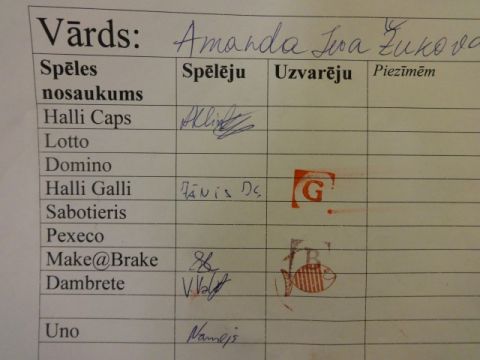 Vārds: Amanda Ieva Žukova
Spēles nosaukums Spēlēju Uzvarēju Piezīmēm
Halli Caps
Lotto
Domino
Halli Galli Jānis G
Sabotieris
Pexeco
Make@Brake B
Dambrete
Uno Namejs